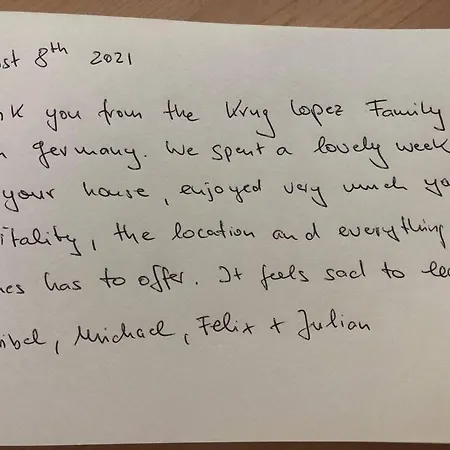 ust 8th 2021
nk you from the Krug Lopez Family
n Germany. We spent a lovely week
your house, enjoyed very much yo
pitality, the location and everything
nes has to offer. It feels sad to lea
ibel, Michael, Felix + Julian